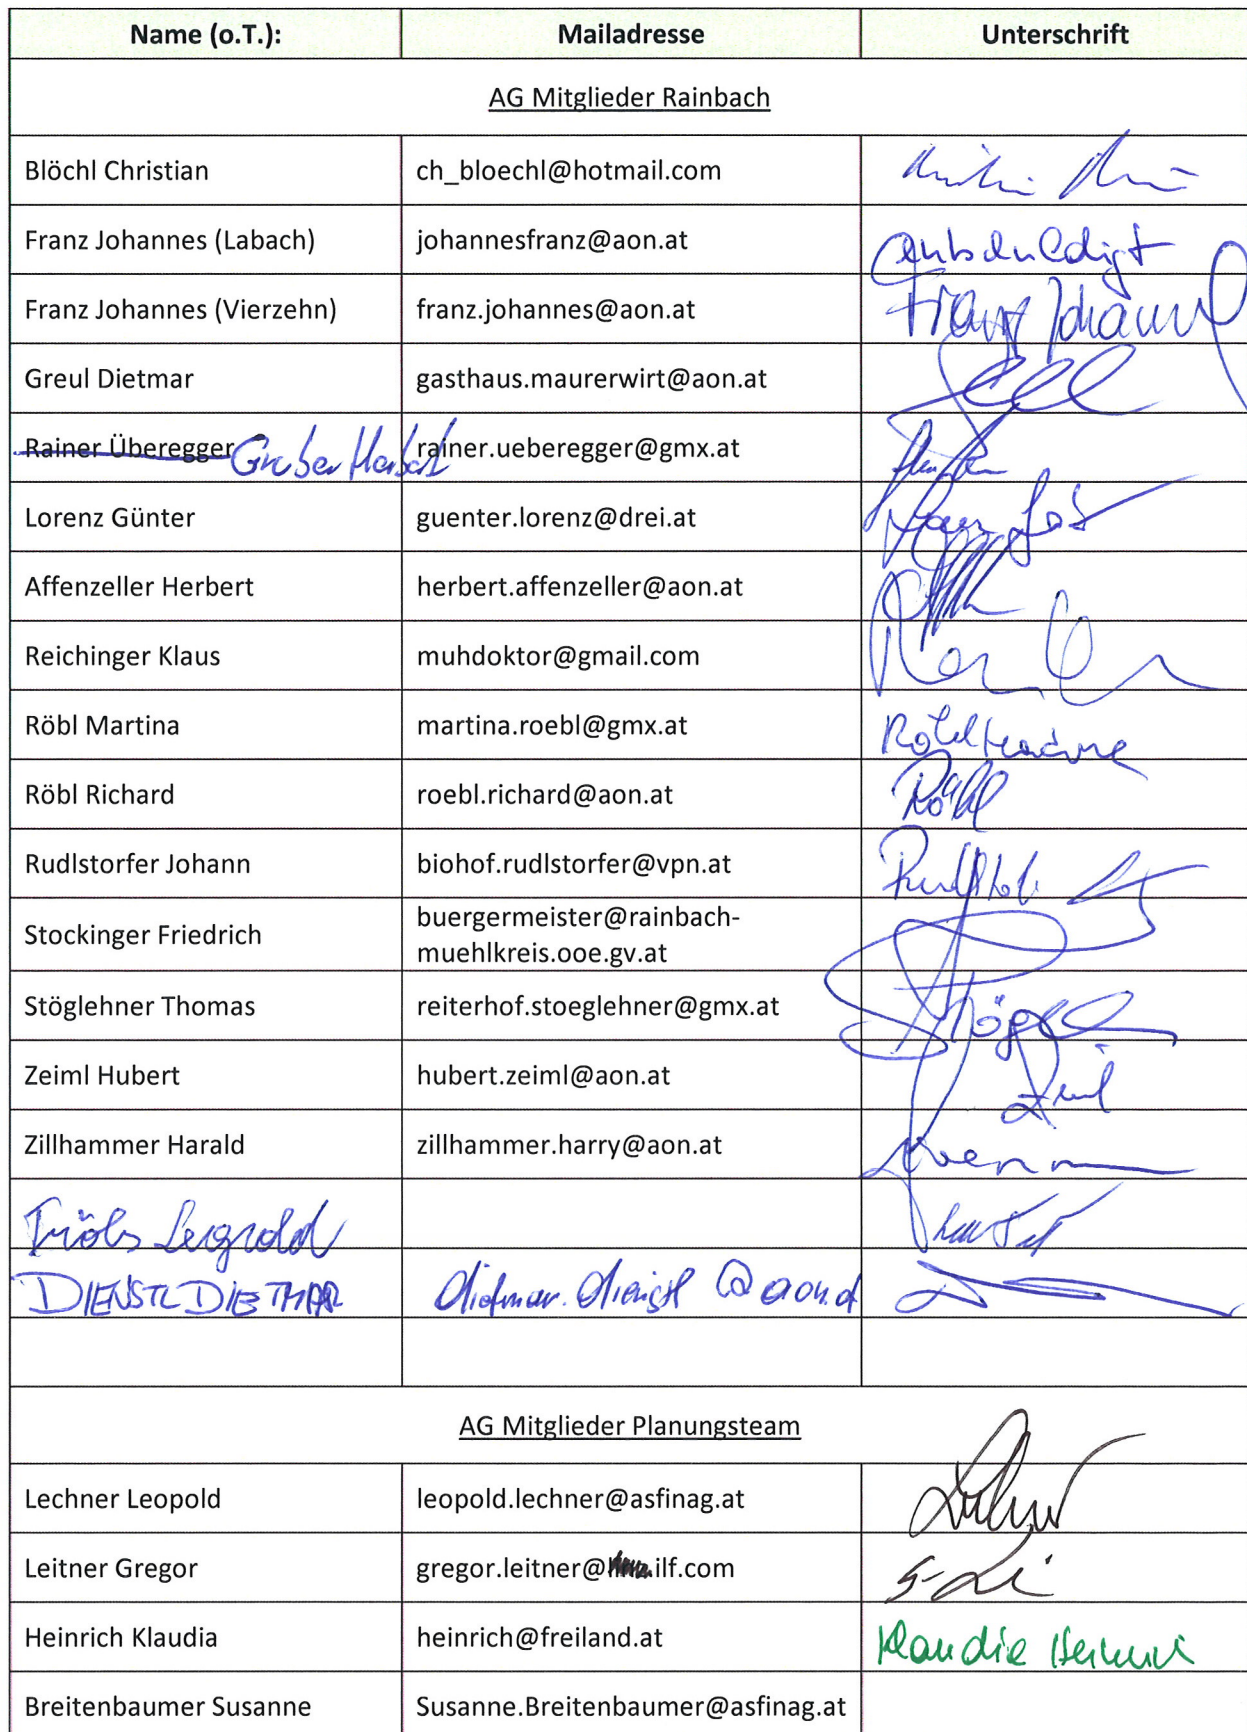 Name (o.T.): Mailadresse Unterschrift
AG Mitglieder Rainbach
Blöchl Christian ch_bloechl@hotmail.com
Franz Johannes (Labach) johannesfranz@aon.at entschuldigt
Franz Johannes (Vierzehn) franz.johannes@aon.at Franz Johannes
Greul Dietmar gasthaus.maurerwirt@aon.at
Rainer Überegger Gruber Herbert rainer.ueberegger@gmx.at
Lorenz Günter guenter.lorenz@drei.at
Affenzeller Herbert herbert.affenzeller@aon.at
Reichinger Klaus muhdoktor@gmail.com
Röbl Martina martina.roebl@gmx.at Röbl Martina
Röbl Richard roebl.richard@aon.at Röbl
Rudlstorfer Johann biohof.rudlstorfer@vpn.at
Stockinger Friedrich buergermeister@rainbach-
muehlkreis.ooe.gv.at
Stöglehner Thomas reiterhof.stoeglehner@gmx.at
Zeiml Hubert hubert.zeiml@aon.at
Zillhammer Harald zillhammer.harry@aon.at
Leopold
DIENSTL DIETMAR dietmar.dienstl@aon.at
AG Mitglieder Planungsteam
Lechner Leopold leopold.lechner@asfinag.at
Leitner Gregor gregor.leitner@ilf.com
Heinrich Klaudia heinrich@freiland.at Klaudia Heinrich
Breitenbaumer Susanne Susanne.Breitenbaumer@asfinag.at